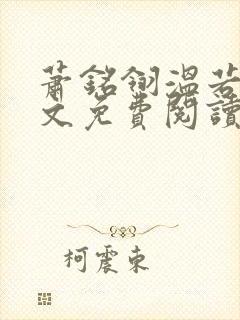 蕭銘翎溫若
文免費閱讀
柯震東